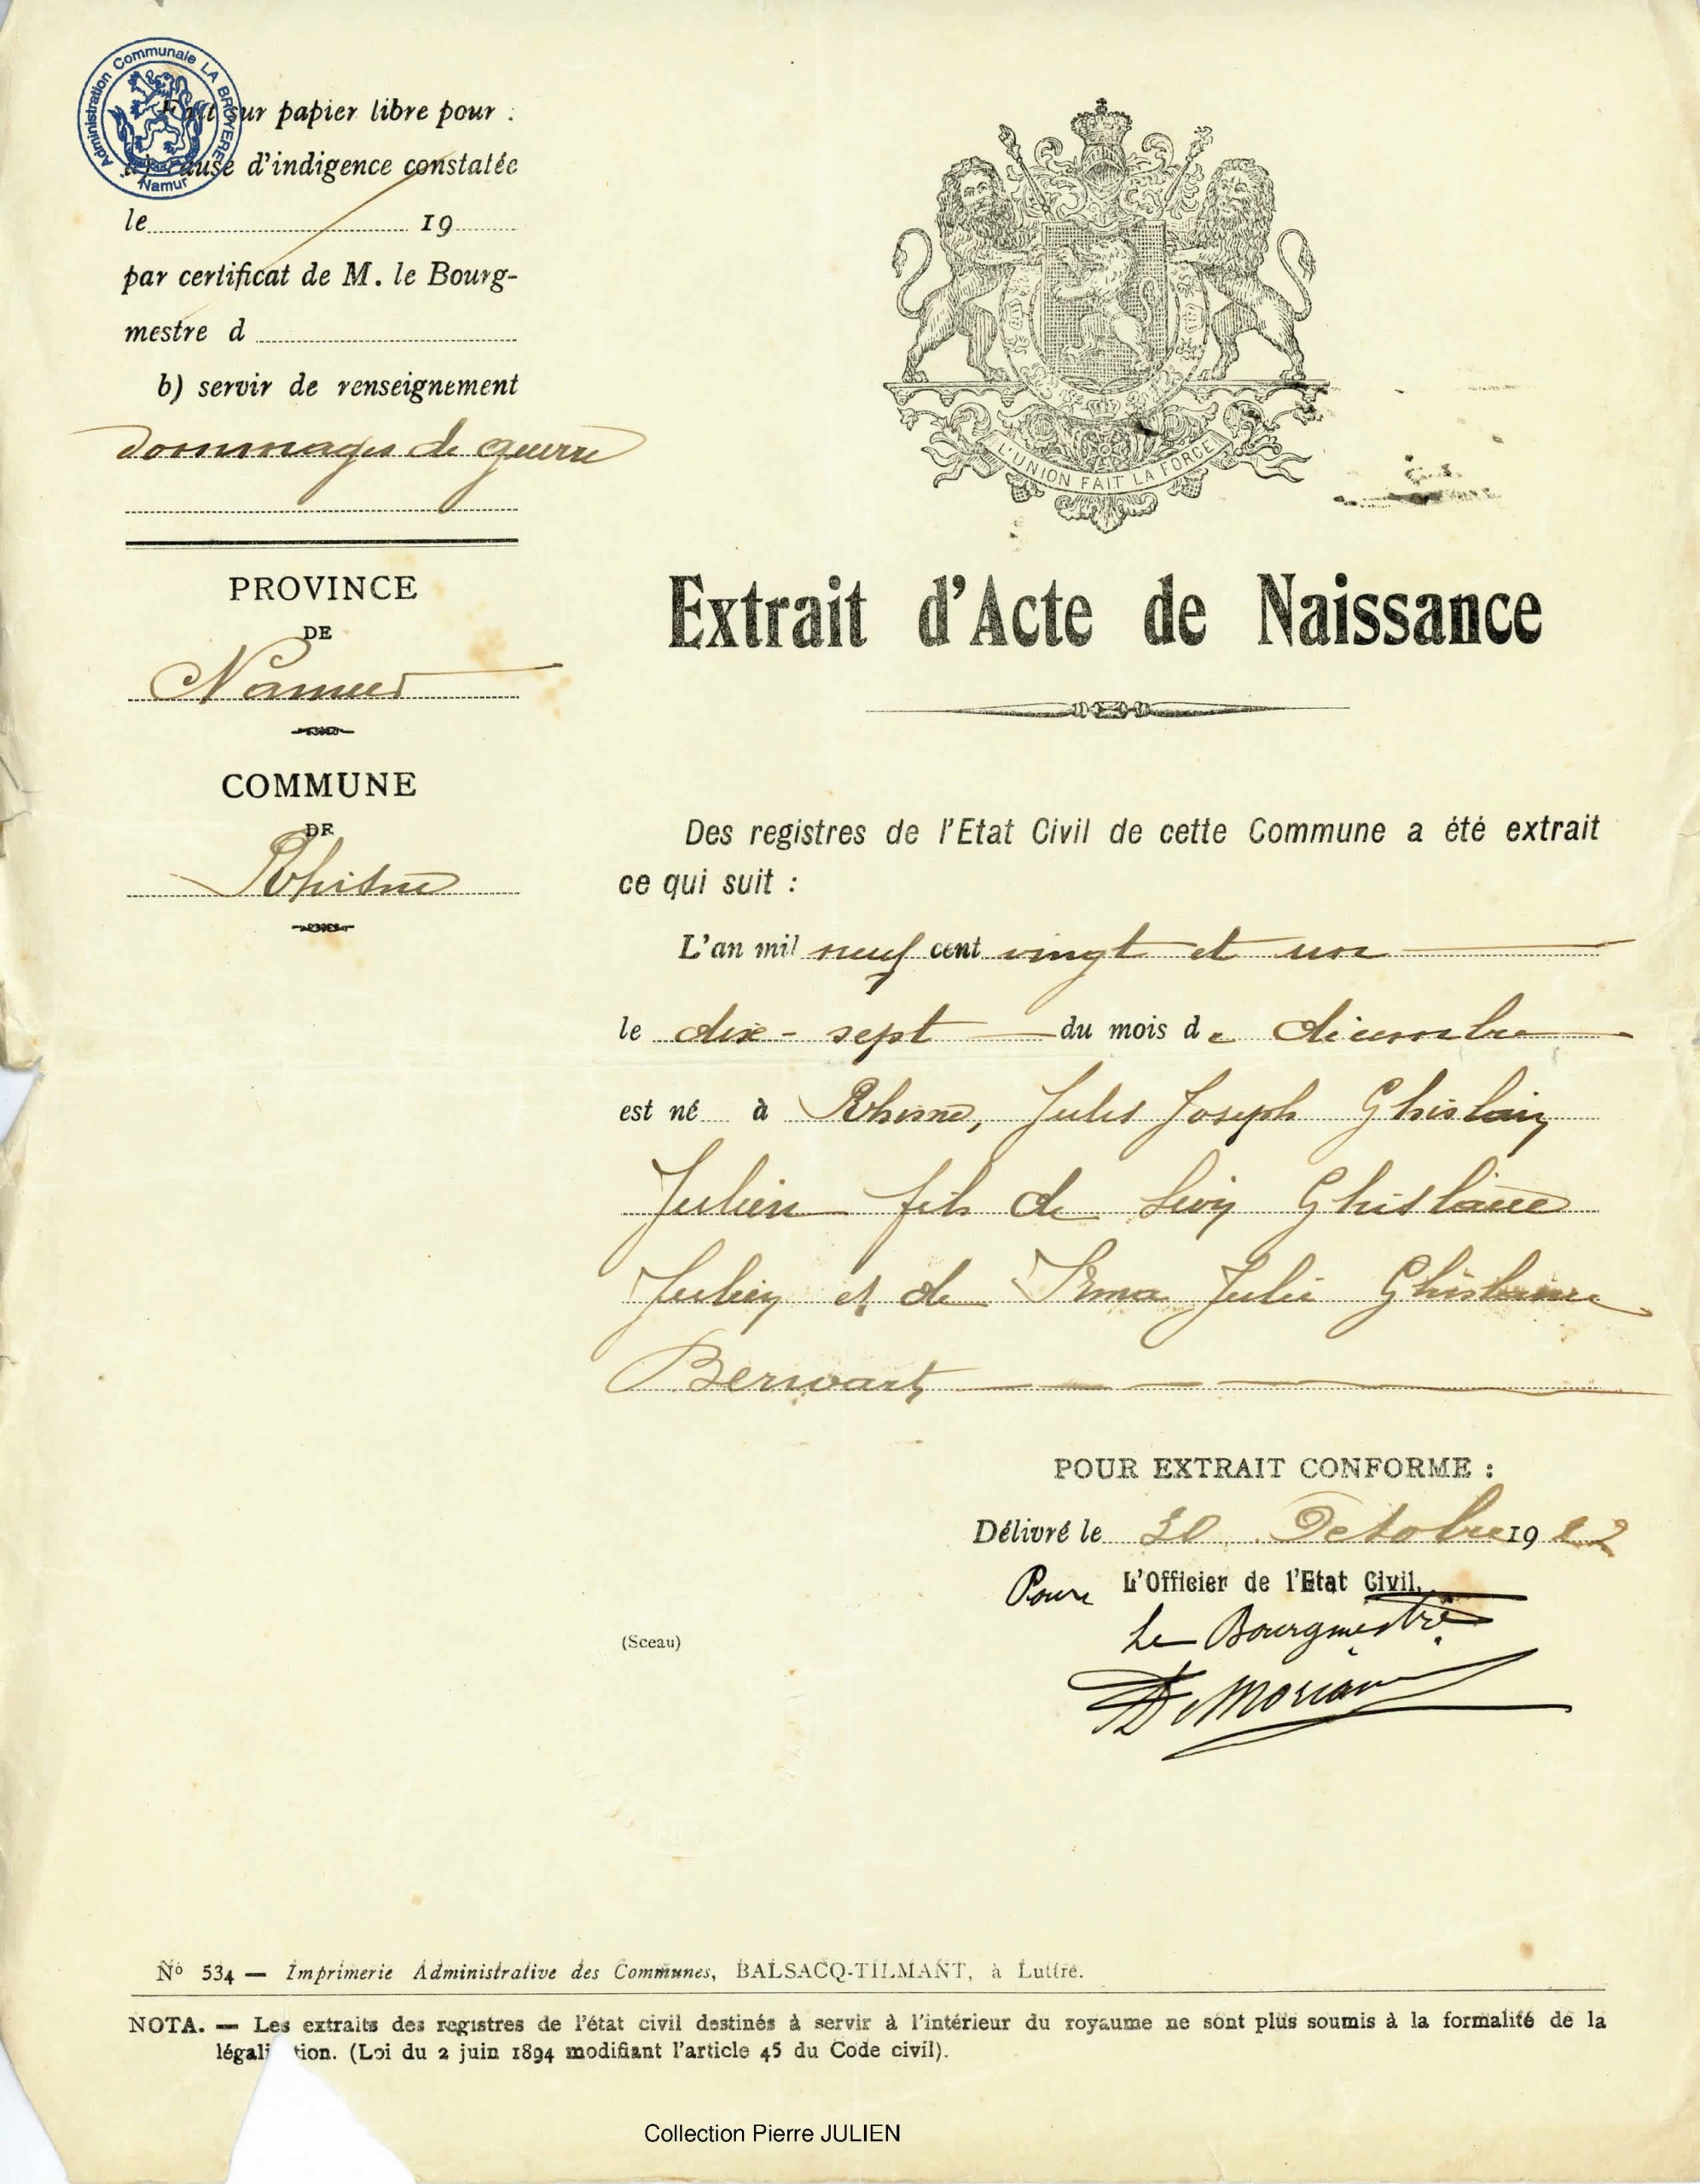 Administration Communale LA BRUYERE
Namur
Fait sur papier libre pour :
a) cause d'indigence constatée
le 19
par certificat de M. le Bourg-
mestre d
b) servir de renseignement
Dommages de guerre
PROVINCE
DE
Namur
COMMUNE
DE
Rhisne
L'UNION FAIT LA FORCE
Extrait d'Acte de Naissance
Des registres de l'Etat Civil de cette Commune a été extrait
ce qui suit :
L'an mil neuf cent vingt et un
le dix-sept du mois de décembre
est né à Rhisne, Jules Joseph Ghislain
Julien fils de Ghislain
Julien et de Irma Julie Ghislaine
Berwart
POUR EXTRAIT CONFORME :
Délivré le Octobre 19
Pour L'Officier de l'Etat Civil,
Le Bourgmestre
(Sceau)
Nº 534 — Imprimerie Administrative des Communes, BALSACQ-TILMANT, à Luttre.
NOTA. — Les extraits des registres de l'état civil destinés à servir à l'intérieur du royaume ne sont plus soumis à la formalité de la
légali tion. (Loi du 2 juin 1894 modifiant l'article 45 du Code civil).
Collection Pierre JULIEN